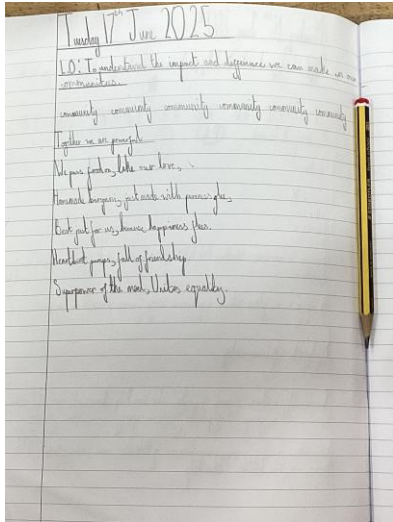 Tuesday 17th June 2025
LO: To understand the impact and difference we can make in our
communities.
community community community community community community
Together we are powerful
We pass food on, like our love,
Homemade burgers, just made with
Best part for us, because happiness
Heartbeat pumps, full of friendship
Superpower of the meal, Unites equality.